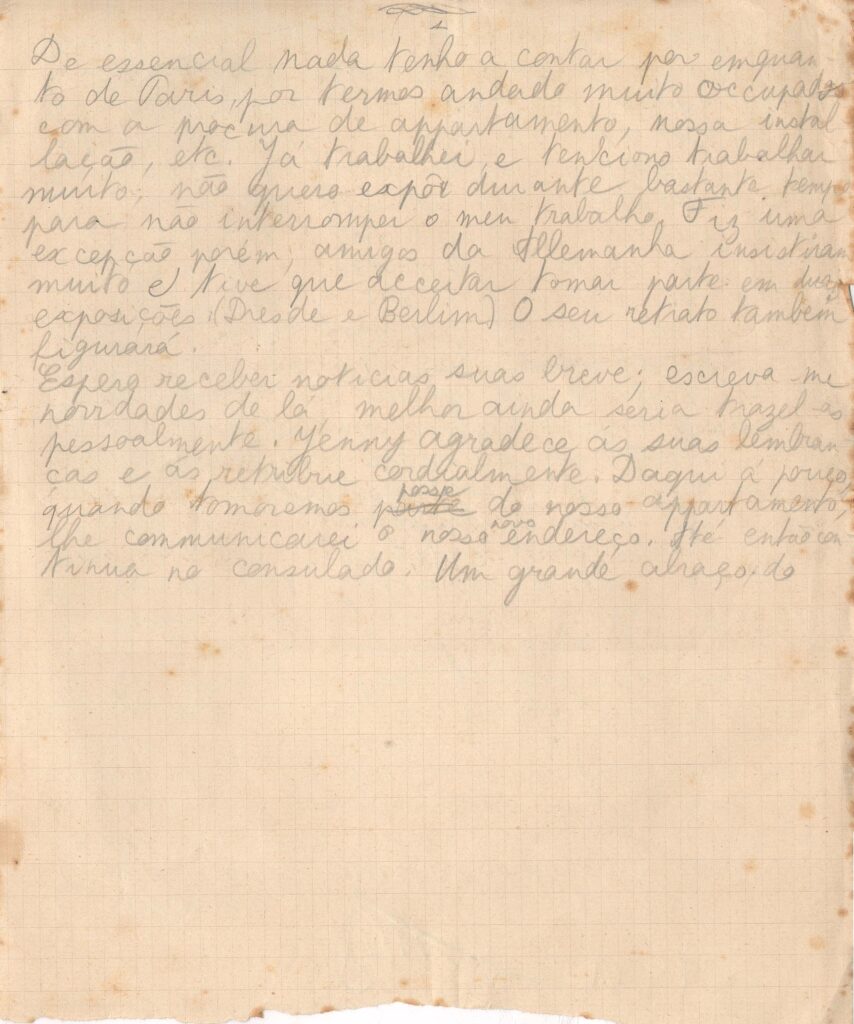 De essencial nada tenho a contar por emquan-
to de Paris, por termos andado muito occupados
com a procura de appartamento, nossa instal
lação, etc. Já trabalhei, e tenciono trabalhar
muito; não quero expôr durante bastante tempo
para não interromper o meu trabalho. Fiz uma
excepção porém; amigos da Allemanha insistiram
muito e tive que acceitar tomar parte em duas
exposições (Dresde e Berlim) O seu retrato também
figurará.
Espero receber noticias suas breve; escreva-me
novidades de lá, melhor ainda seria trazel-as
pessoalmente. Jenny agradece ás suas lembran-
ças e as retribue cordialmente. Daqui á pouco,
posse
quando tomaremos parte do nosso appartamento,
novo
lhe communicarei o nosso endereço. Até então con-
tinua no consulado. Um grande abraço do